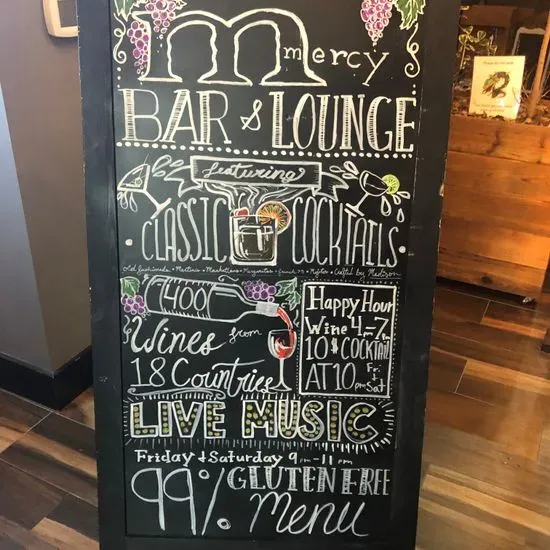 m mercy
BAR & LOUNGE
featuring
CLASSIC COCKTAILS
Old fashionado • Martinis • Manhattans • Margaritas • french 75 • Mojitos • Crafted by Madison
400
Wines from
18 Countries
Happy Hour
Wine 4pm-7pm
10$ COCKTAIL
AT 10pm Fri & Sat
LIVE MUSIC
Friday & Saturday 9pm-11pm
99% GLUTEN FREE
Menu